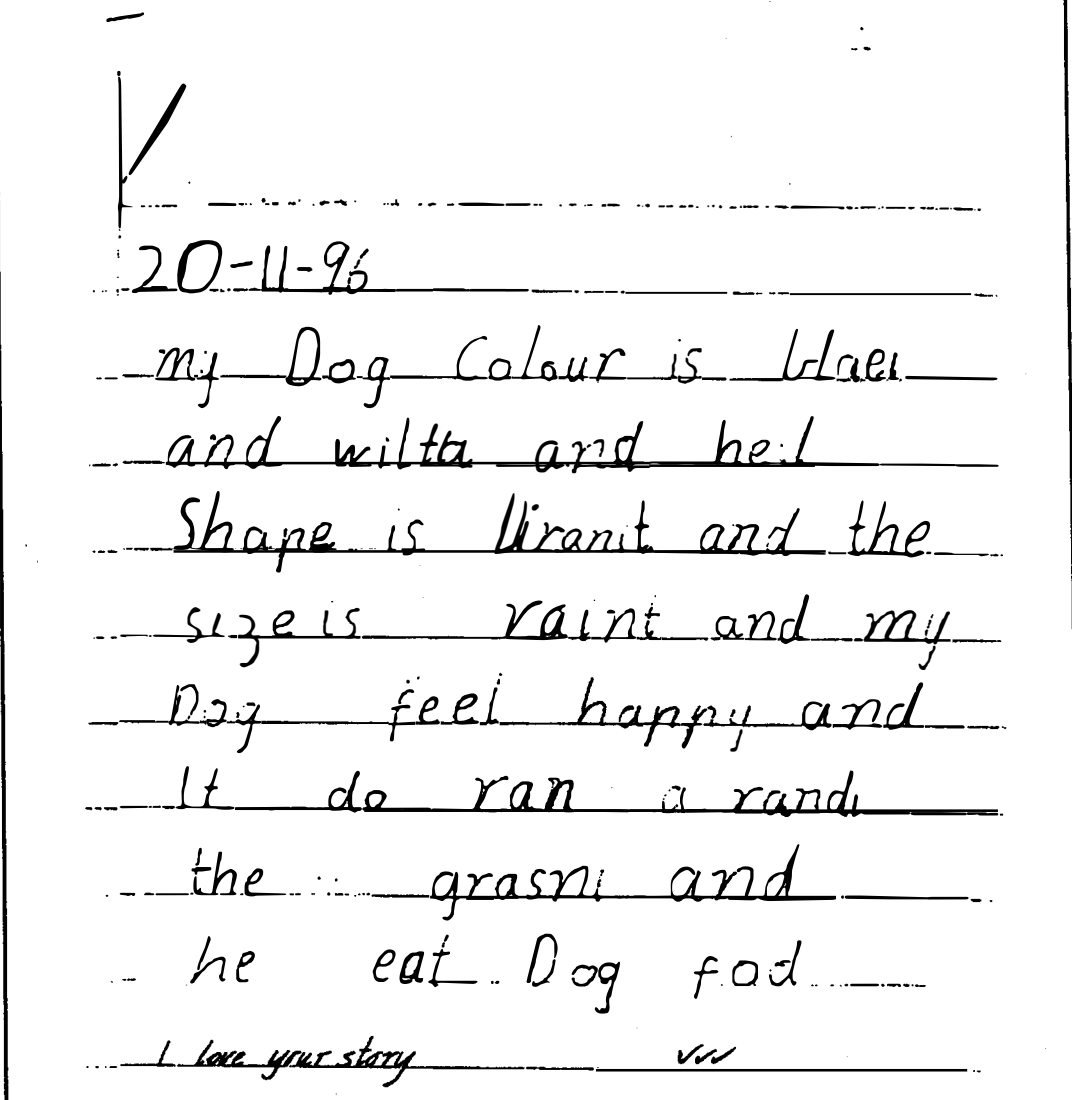 20-11-96
my Dog Colour is blaei
and wiltta and heil
Shape is and the
size is raint and my
Dog feel happy and
It do ran a rand
the grasni and
he eat Dog fod
I love your story